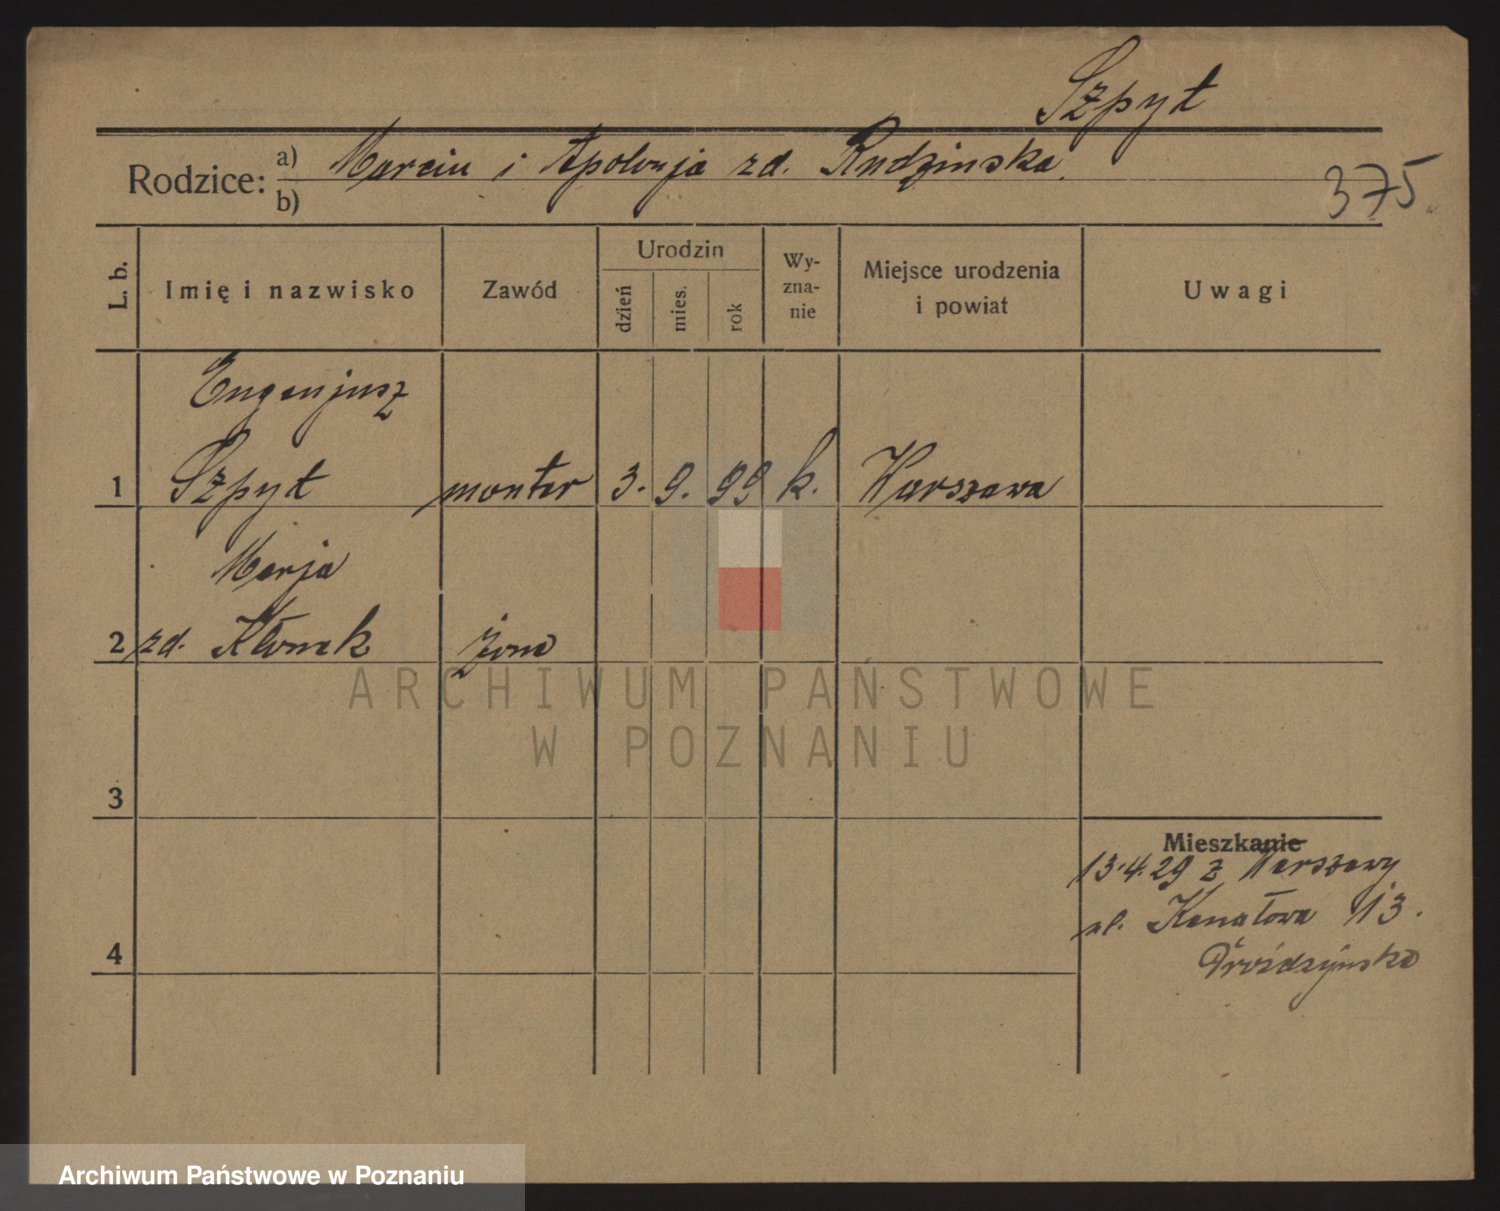 Szpyt
Rodzice: a) Marcin i Apolonja zd. Rudzinska.
b)
375
L. b.
Imię i nazwisko
Zawód
Urodzin
dzień
mies.
rok
Wy-
zna-
nie
Miejsce urodzenia
i powiat
Uwagi
Eugenjusz
1 Szpyt monter 3. 9. 99 k. Warszawa
Marja
2 zd. Kłonek żona
3
4
Mieszkanie
13.4.29 z Warszawy
ul. Kanałowa 13.
ARCHIWUM PAŃSTWOWE
W POZNANIU
Archiwum Państwowe w Poznaniu